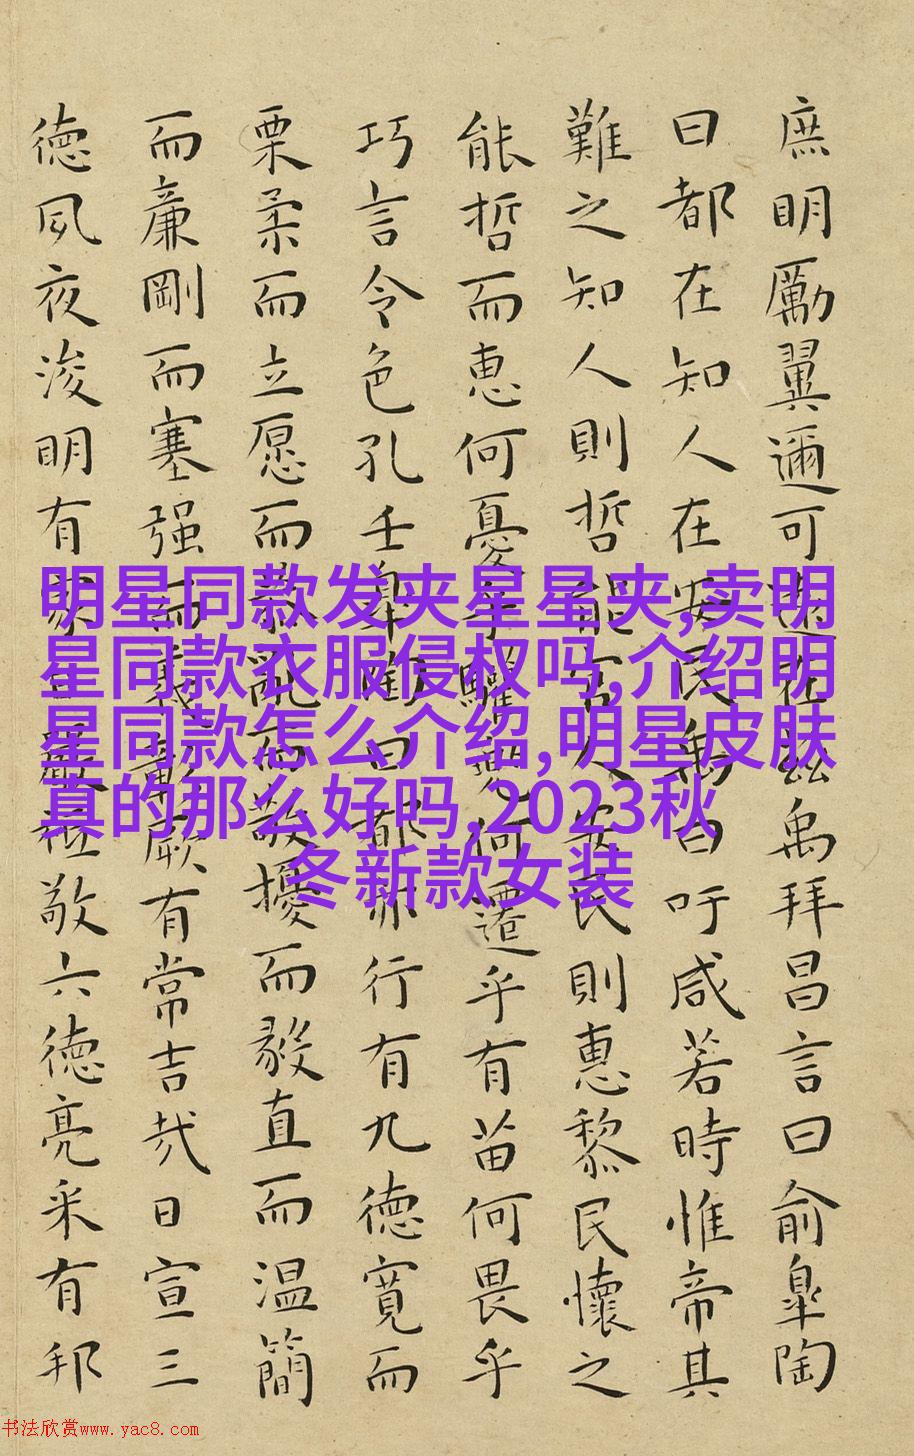 庶明厲翼邇可遠在茲禹拜昌言曰俞皐陶
曰都在知人在安民禹曰吁咸若時惟帝其
難之知人則哲能官人安民則惠黎民懷之
能哲而恵何憂乎驩兜何遷乎有苗何畏乎
巧言令色孔壬皐陶曰都亦行有九德寬而
栗柔而立愿而恭亂而敬擾而毅直而温簡
而廉剛而塞强而義彰厥有常吉哉日宣三
德夙夜浚明有家日嚴祗敬六德亮采有邦
明星同款发夹星星夹,卖明
星同款衣服侵权吗,介绍明
星同款怎么介绍,明星皮肤
真的那么好吗,2023秋
冬新款女装
书法欣赏www.yac8.com